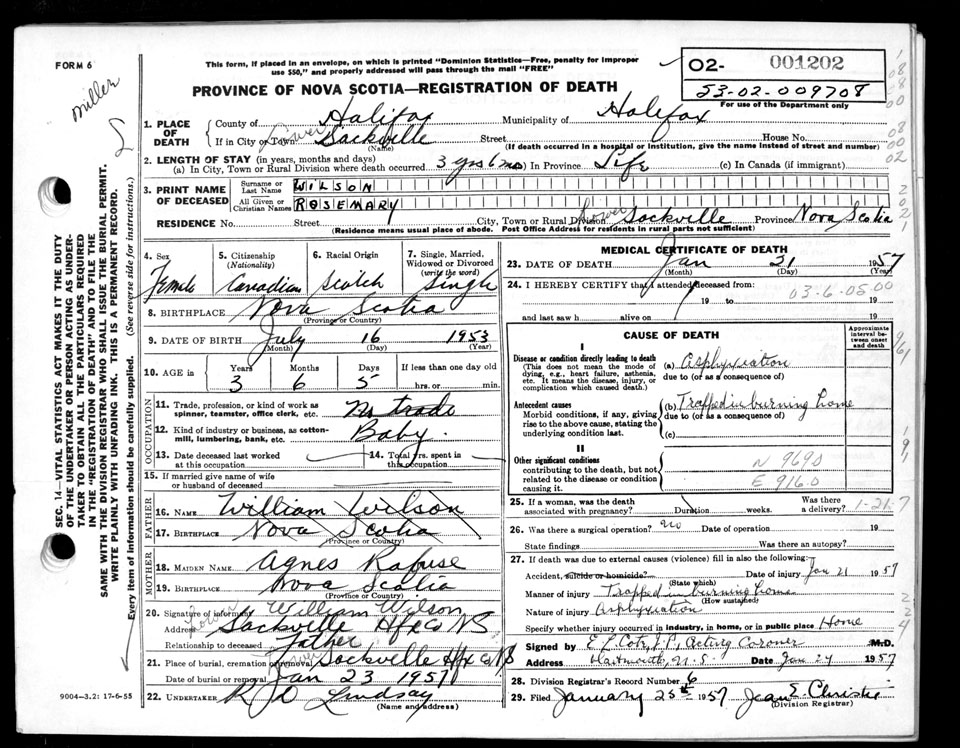 FORM 6
This form, if placed in an envelope, on which is printed "Dominion Statistics—Free, penalty for improper
use $50," and properly addressed will pass through the mail "FREE"
O2- 001202
53-02-009708
For use of the Department only
PROVINCE OF NOVA SCOTIA—REGISTRATION OF DEATH
miller
SEC. 14—VITAL STATISTICS ACT MAKES IT THE DUTY
OF THE UNDERTAKER OR PERSON ACTING AS UNDER-
TAKER TO OBTAIN ALL THE PARTICULARS REQUIRED
IN THE "REGISTRATION OF DEATH" AND TO FILE THE
SAME WITH THE DIVISION REGISTRAR WHO SHALL ISSUE THE BURIAL PERMIT.
WRITE PLAINLY WITH UNFADING INK. THIS IS A PERMANENT RECORD.
Every item of information should be carefully supplied. (See reverse side for instructions.)
1. PLACE OF DEATH County of Halifax Municipality of Halifax
If in City or Town Lower Sackville Street House No.
(Name) (If death occurred in a hospital or institution, give the name instead of street and number)
2. LENGTH OF STAY (in years, months and days)
(a) In City, Town or Rural Division where death occurred 3 yrs 6 mo (b) In Province Life (c) In Canada (if immigrant)
3. PRINT NAME OF DECEASED Surname or Last Name WILSON
All Given or Christian Names ROSEMARY
RESIDENCE No. Street City, Town or Rural Division Lower Sackville Province Nova Scotia
(Residence means usual place of abode. Post Office Address for residents in rural parts not sufficient)
4. Sex 5. Citizenship (Nationality) 6. Racial Origin 7. Single, Married, Widowed or Divorced (write the word)
Female Canadian Scotch Single
8. BIRTHPLACE Nova Scotia
(Province or Country)
9. DATE OF BIRTH July 16 1953
(Month) (Day) (Year)
10. AGE in Years Months Days If less than one day old
3 6 5 hrs. or min.
OCCUPATION
11. Trade, profession, or kind of work as spinner, teamster, office clerk, etc. No trade
12. Kind of industry or business, as cotton-mill, lumbering, bank, etc. Baby.
13. Date deceased last worked at this occupation 14. Total yrs. spent in this occupation
15. If married give name of wife or husband of deceased
FATHER
16. NAME William Wilson
17. BIRTHPLACE Nova Scotia
(Province or Country)
MOTHER
18. MAIDEN NAME Agnes Rafuse
19. BIRTHPLACE Nova Scotia
(Province or Country)
20. Signature of informant William Wilson
Address Lower Sackville Hfx Co NS
Relationship to deceased father
21. Place of burial, cremation or removal Lower Sackville Hfx Co NS
Date of burial or removal Jan 23 1957
22. UNDERTAKER R D Lindsay
(Name and address)
9004—3.2: 17-6-55
MEDICAL CERTIFICATE OF DEATH
23. DATE OF DEATH Jan 21 1957
(Month) (Day) (Year)
24. I HEREBY CERTIFY that I attended deceased from:
19 to 19
03-6-05-00
and last saw h alive on 19
CAUSE OF DEATH
Approximate interval between onset and death
I
Disease or condition directly leading to death
(This does not mean the mode of dying, e.g., heart failure, asthenia, etc. It means the disease, injury, or complication which caused death.)
(a) Asphyxiation
due to (or as a consequence of)
Antecedent causes
Morbid conditions, if any, giving rise to the above cause, stating the underlying condition last.
(b) Trapped in burning home
due to (or as a consequence of)
(c)
II
Other significant conditions
contributing to the death, but not related to the disease or condition causing it.
N 9690
E 9160
25. If a woman, was the death associated with pregnancy? Duration weeks. Was there a delivery?
1-21-7
26. Was there a surgical operation? no Date of operation 19
State findings Was there an autopsy?
27. If death was due to external causes (violence) fill in also the following:
Accident, suicide or homicide? Date of injury Jan 21 1957
(State which)
Manner of injury Trapped in burning home
(How sustained)
Nature of injury Asphyxiation
Specify whether injury occurred in industry, in home, or in public place Home
Signed by E L Cote, J.P, Acting Coroner M.D.
Address Dartmouth, N.S. Date Jan 24 1957
28. Division Registrar's Record Number 6
29. Filed January 25th 1957 Jean E Christie
(Division Registrar)